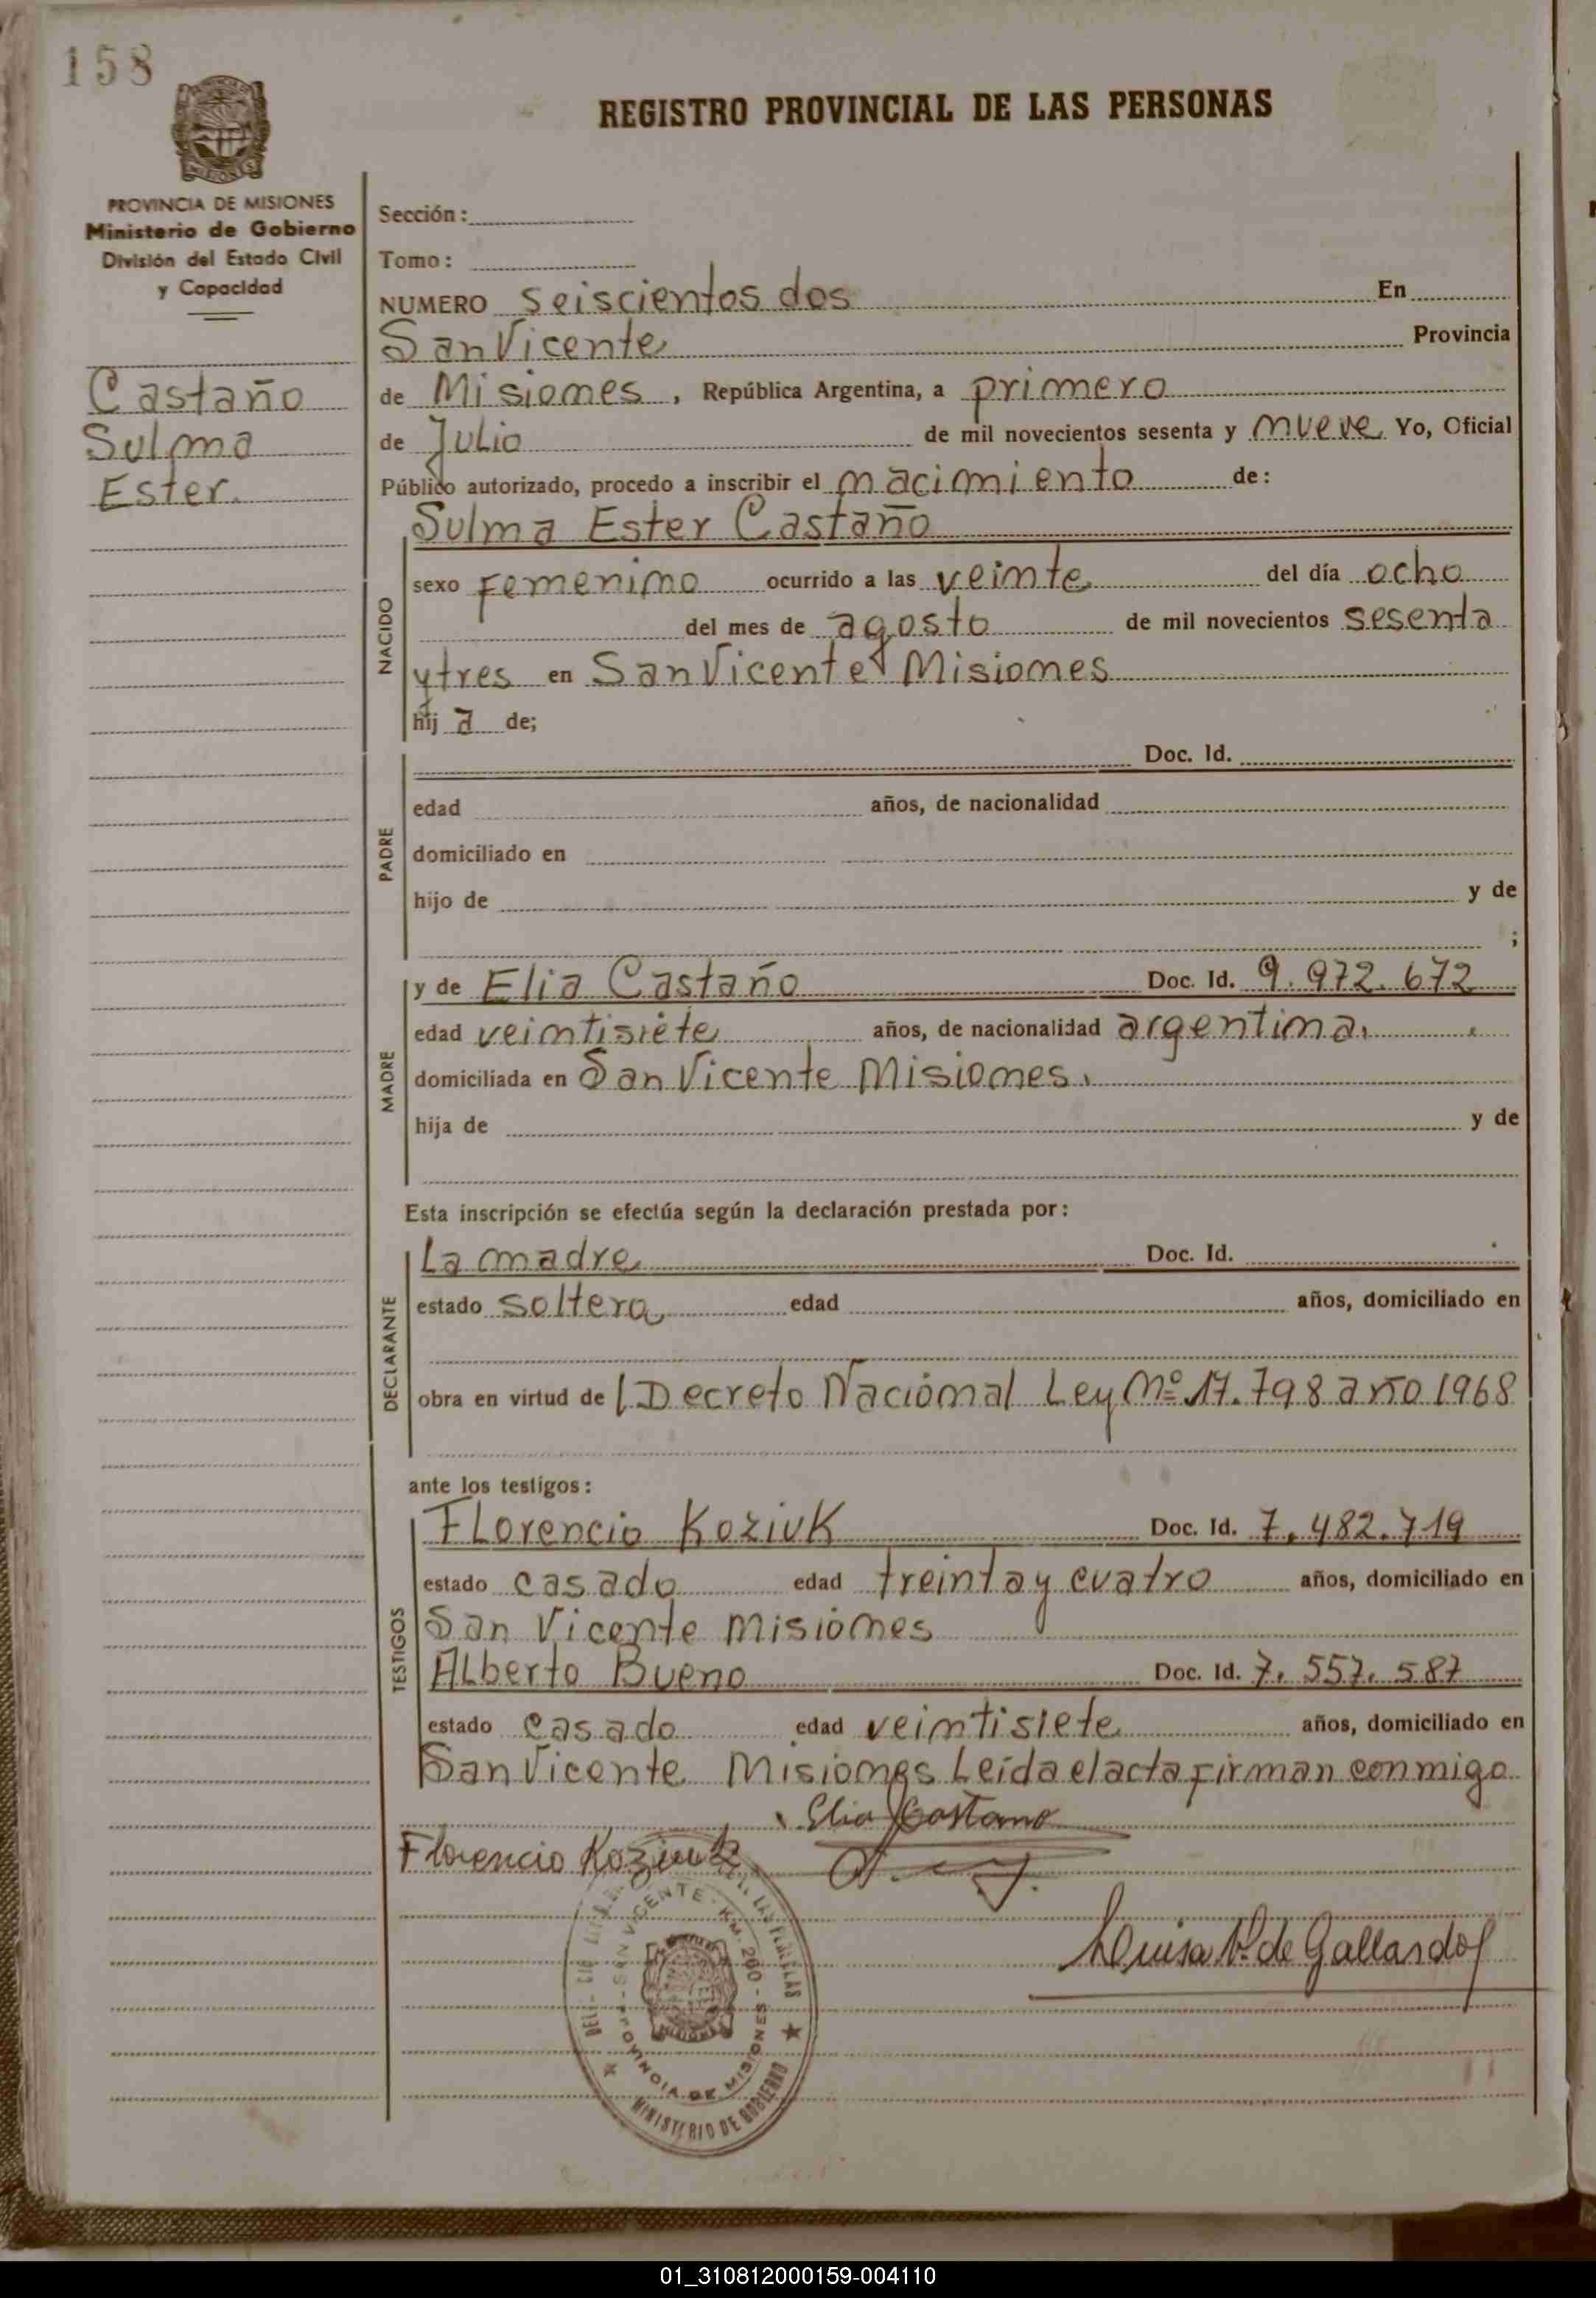 158
REGISTRO PROVINCIAL DE LAS PERSONAS
PROVINCIA DE MISIONES
Ministerio de Gobierno
División del Estado Civil
y Capacidad
Castaño
Sulma
Ester.
Sección:
Tomo:
NUMERO seiscientos dos En
San Vicente Provincia
de Misiones, República Argentina, a primero
de Julio de mil novecientos sesenta y nueve Yo, Oficial
Público autorizado, procedo a inscribir el nacimiento de:
NACIDO
Sulma Ester Castaño
sexo Femenino ocurrido a las veinte del día ocho
del mes de agosto de mil novecientos sesenta
y tres en San Vicente Misiones
hij a de;
PADRE
Doc. Id.
edad años, de nacionalidad
domiciliado en
hijo de y de
;
MADRE
y de Elia Castaño Doc. Id. 9.972.672
edad veintisiete años, de nacionalidad argentina.
domiciliada en San Vicente Misiones.
hija de y de
Esta inscripción se efectúa según la declaración prestada por:
DECLARANTE
La madre Doc. Id.
estado soltera edad años, domiciliado en
obra en virtud de l Decreto Nacional Ley Nº 17.798 año 1968
ante los testigos:
TESTIGOS
Florencio Koziuk Doc. Id. 7.482.719
estado casado edad treinta y cuatro años, domiciliado en
San Vicente Misiones
Alberto Bueno Doc. Id. 7.557.587
estado casado edad veintisiete años, domiciliado en
San Vicente Misiones Leída el acta firman conmigo
Elia Castano
Florencio Koziuk
Luisa V. de Gallardo
SAN VICENTE - KM. 260 -
PROVINCIA DE MISIONES
MINISTERIO DE GOBIERNO
01_310812000159-004110